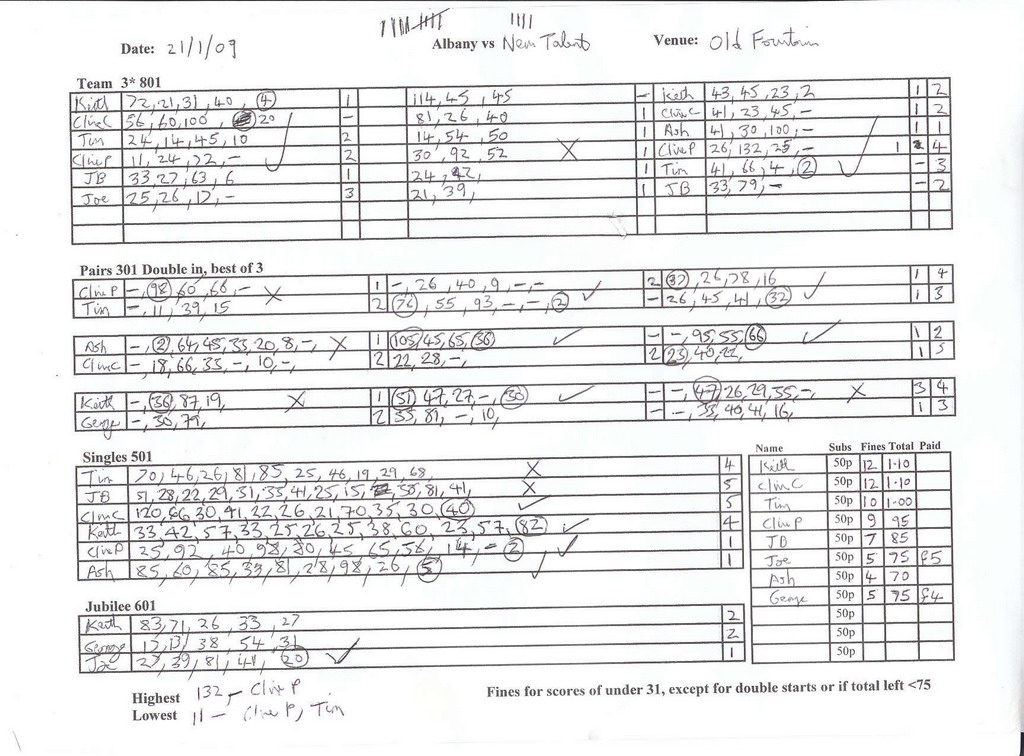 Date: 21/1/09 Albany vs New Talent Venue: Old Fountain
Team 3* 801
Keith 72, 21, 31, 40, 4 1 114, 45, 45 - Keith 43, 45, 23, 2 1 2
Clive C 56, 60, 100, 20 - 81, 26, 40 1 Clive C 41, 23, 45, - 1 2
Tim 24, 14, 45, 10 2 14, 54, 50 1 Ash 41, 30, 100, - 1 1
Clive P 11, 24, 22, - 2 30, 92, 52 1 Clive P 26, 132, 25, - 1 4
JB 33, 27, 63, 6 1 24, 42, 1 Tim 41, 66, 4, 2 - 3
Joe 25, 26, 17, - 3 21, 39, 1 JB 33, 79, - - 2
Pairs 301 Double in, best of 3
Clive P -, 98, 60, 66, - 1 -, 26, 40, 9, -, - 2 37, 26, 78, 16 1 4
Tim -, 11, 39, 15 2 76, 55, 93, -, -, 2 - 26, 45, 41, 32 1 3
Ash -, 2, 64, 45, 33, 20, 8, -, 1 105, 45, 65, 36 - -, 95, 55, 66 1 2
Clive C -, 18, 66, 35, -, 10, -, 2 22, 28, -, 2 23, 40, 22, 1 5
Keith -, 36, 87, 19, 1 51, 47, 27, -, 30 - -, 47, 26, 29, 55, - 3 4
George -, 30, 79, 2 55, 81, -, 10, - -, 33, 40, 41, 16, 1 3
Singles 501
Tim 70, 46, 26, 81, 85, 25, 46, 19, 29, 68, 4
JB 51, 28, 22, 29, 31, 33, 41, 25, 15, 30, 81, 41, 5
Clive C 120, 66, 30, 41, 22, 26, 21, 70, 35, 30, 40 5
Keith 33, 42, 57, 33, 25, 26, 25, 38, 60, 23, 57, 82 4
Clive P 25, 92, 40, 98, 80, 45, 65, 58, 14, - 2 1
Ash 85, 60, 85, 33, 81, 28, 98, 26, 5 1
Name Subs Fines Total Paid
Keith 50p 12 1.10
Clive C 50p 12 1.10
Tim 50p 10 1.00
Clive P 50p 9 95
JB 50p 7 85
Joe 50p 5 75 £5
Ash 50p 4 70
George 50p 5 75 £4
50p
50p
50p
Jubilee 601
Keith 83, 71, 26, 33, 27 2
George 13, 131, 38, 54, 31 2
Joe 27, 39, 81, 41, 20 1
Highest 132 - Clive P
Lowest 11 - Clive P, Tim
Fines for scores of under 31, except for double starts or if total left <75